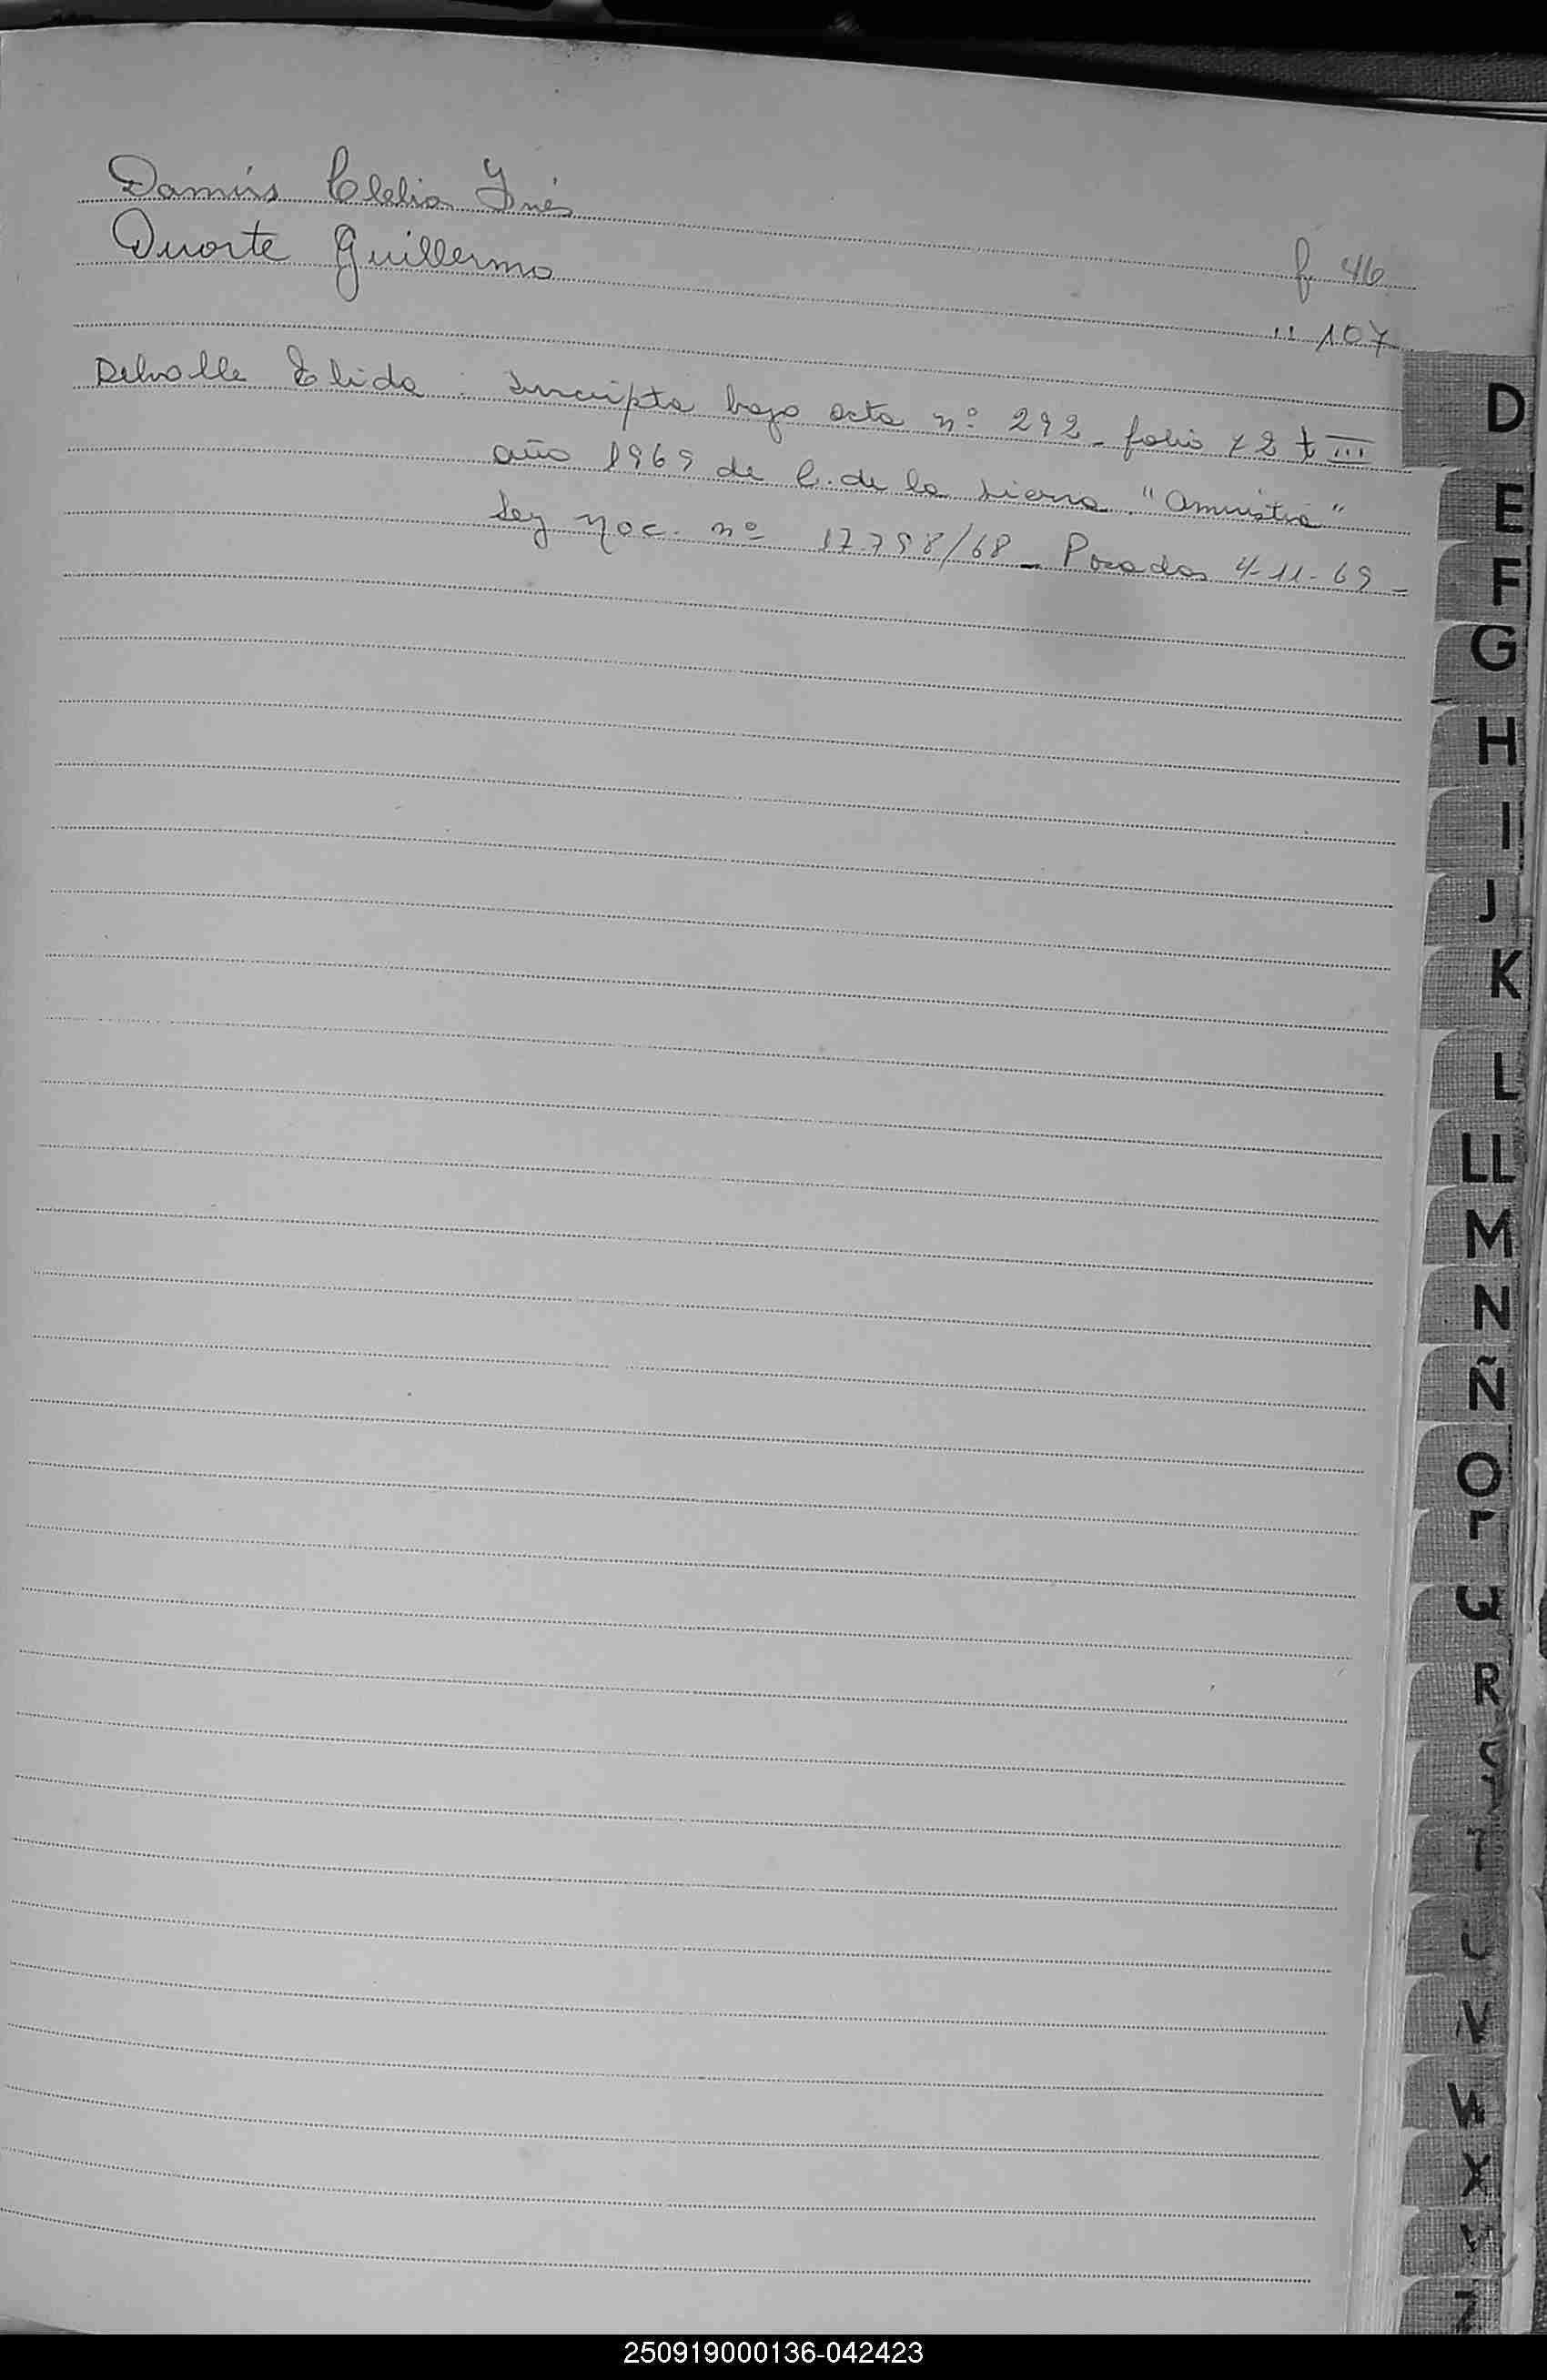 Damús Clelia Inés f 46
Duarte Guillermo " 107
Delvalle Elida. Inscripta bajo acta nº 292 - folio 72 t III
año 1969 de C. de la Sierra. "Amnistia"
Ley Nac. nº 17.798/68 - Posadas 4-11-69 -
D
E
F
G
H
I
J
K
L
LL
M
N
Ñ
O
P
Q
R
S
T
U
V
W
X
Y
Z
250919000136-042423